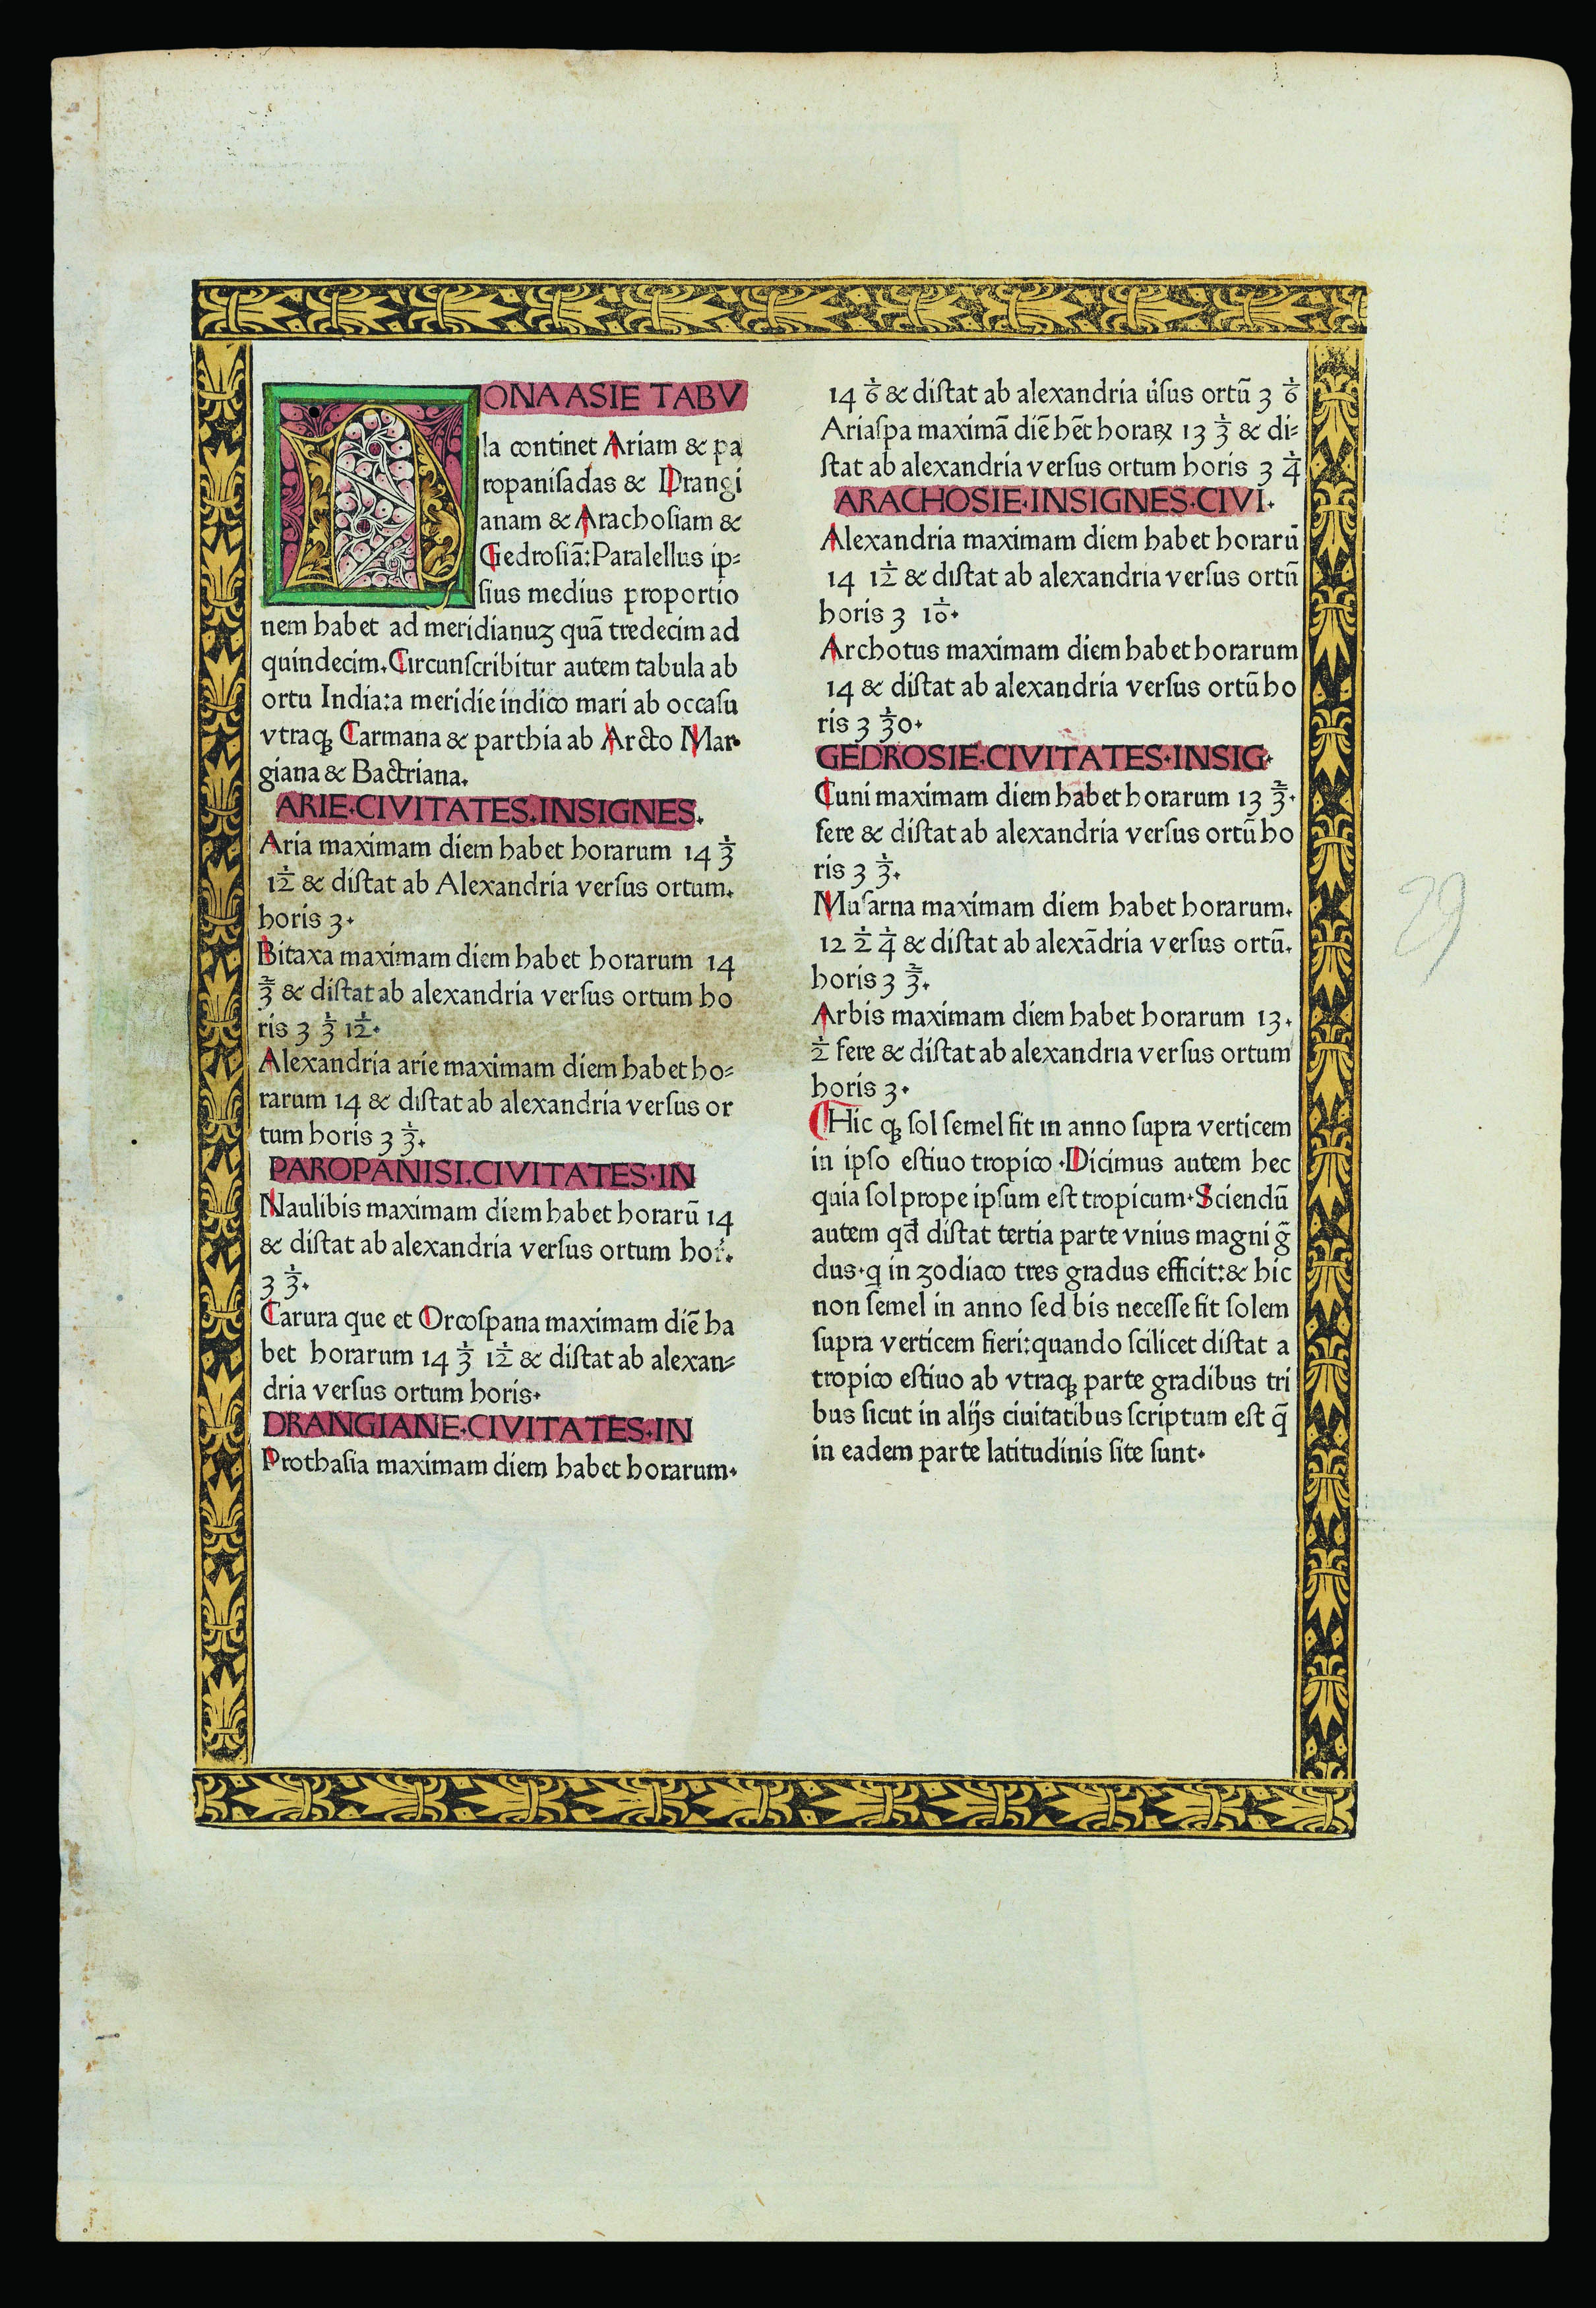 NONA ASIE TABV
la continet Ariam & pa
ropanisadas & Drangi
anam & Arachosiam &
Gedrosiā: Paralellus ip⸗
sius medius proportio
nem habet ad meridianuꝫ quā tredecim ad
quindecim. Circunscribitur autem tabula ab
ortu India: a meridie indico mari ab occasu
vtraqꝫ Carmana & parthia ab Arcto Mar⸱
giana & Bactriana.
ARIE⸱CIVITATES⸱INSIGNES.
Aria maximam diem habet horarum 14 1/3
1/12 & distat ab Alexandria versus ortum.
horis 3.
Bitaxa maximam diem habet horarum 14
2/3 & distat ab alexandria versus ortum ho
ris 3 1/3 1/12.
Alexandria arie maximam diem habet ho⸗
rarum 14 & distat ab alexandria versus or
tum horis 3 1/3.
PAROPANISI.CIVITATES⸱IN
Naulibis maximam diem habet horarū 14
& distat ab alexandria versus ortum hor.
3 1/3.
Carura que et Orcospana maximam diē ha
bet horarum 14 1/3 1/12 & distat ab alexan⸗
dria versus ortum horis.
DRANGIANE⸱CIVITATES⸱IN
Prothasia maximam diem habet horarum.
14 1/6 & distat ab alexandria ủsus ortū 3 1/6
Ariaspa maximā diē hēt horaꝝ 13 1/3 & di⸗
stat ab alexandria versus ortum horis 3 1/4
ARACHOSIE⸱INSIGNES⸱CIVI.
Alexandria maximam diem habet horarū
14 1/12 & distat ab alexandria versus ortū
horis 3 1/10.
Archotus maximam diem habet horarum
14 & distat ab alexandria versus ortū ho
ris 3 1/30.
GEDROSIE⸱CIVITATES⸱INSIG.
Cuni maximam diem habet horarum 13 2/3.
fere & distat ab alexandria versus ortū ho
ris 3 1/3.
Musarna maximam diem habet horarum.
12 1/2 1/4 & distat ab alexādria versus ortū.
horis 3 2/3.
Arbis maximam diem habet horarum 13.
1/2 fere & distat ab alexandria versus ortum
horis 3.
Hic qꝫ sol semel fit in anno supra verticem
in ipso estiuo tropico. Dicimus autem hec
quia sol prope ipsum est tropicum. Sciendū
autem qđ distat tertia parte vnius magni g̃
dus. q in zodiaco tres gradus efficit: & hic
non semel in anno sed bis necesse fit solem
supra verticem fieri: quando scilicet distat a
tropico estiuo ab vtraqꝫ parte gradibus tri
bus sicut in alijs ciuitatibus scriptum est q̄
in eadem parte latitudinis site sunt.
29